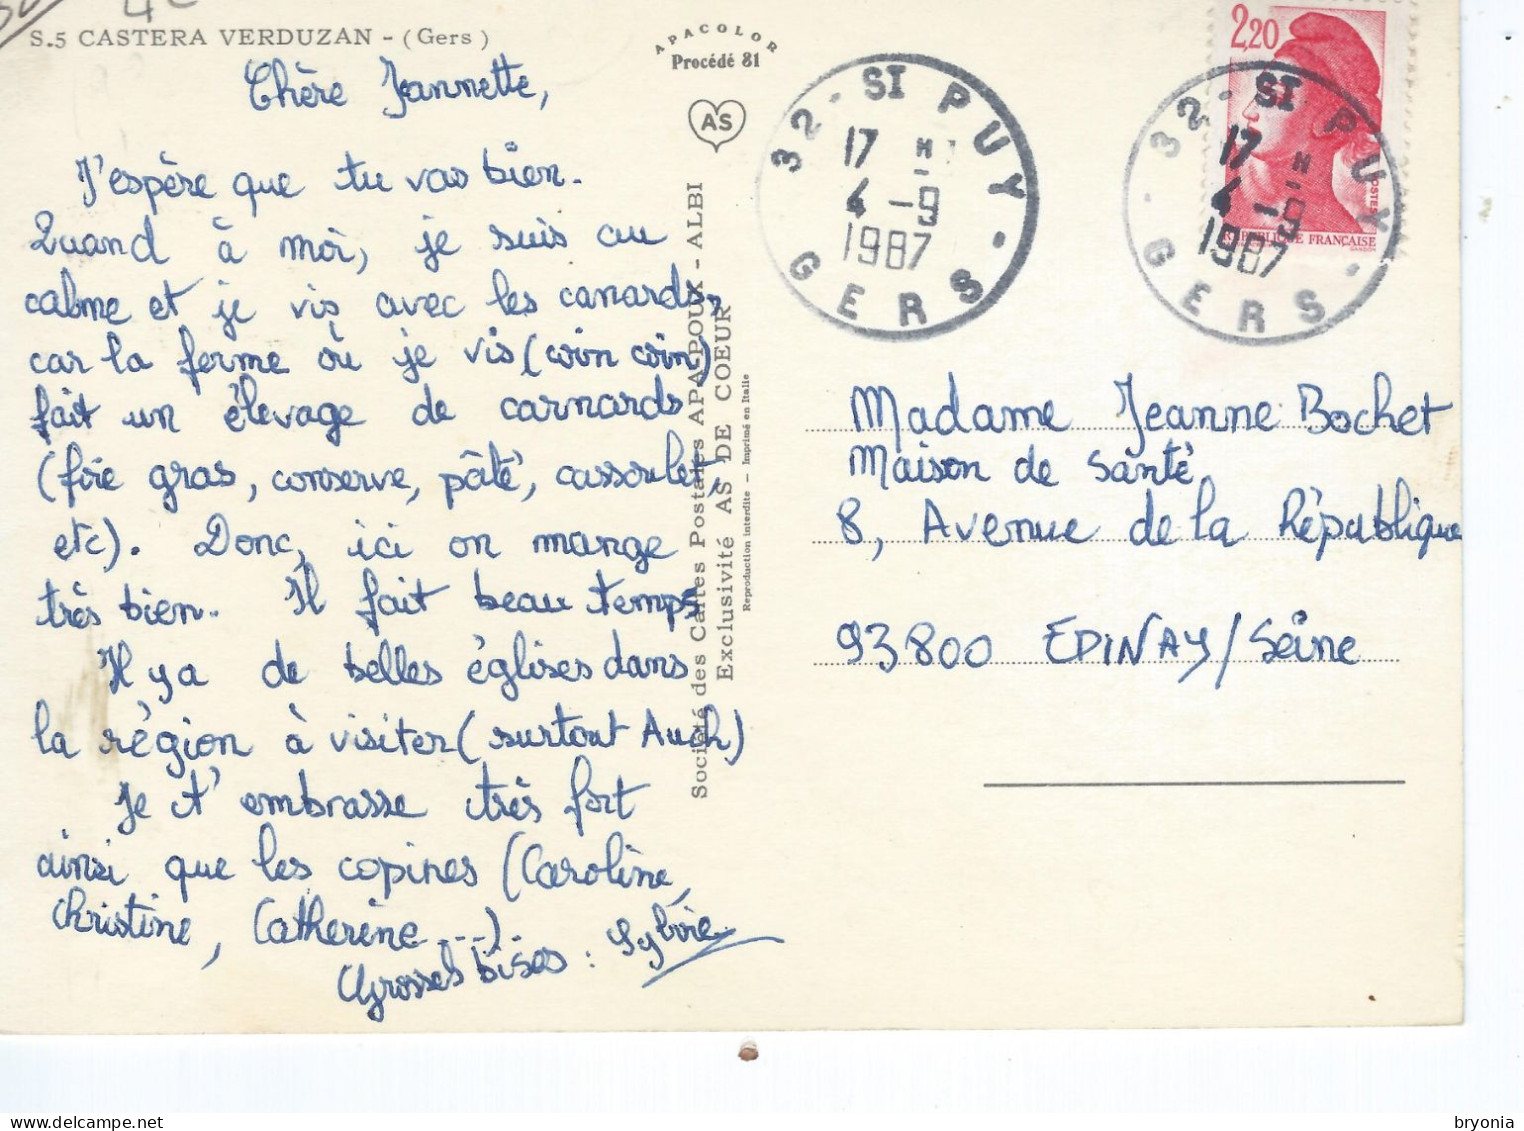 S.5 CASTERA VERDUZAN - (Gers)
Chère Jeannette,
J'espère que tu vas bien.
Quand à moi, je suis au
calme et je vis avec les canards,
car la ferme où je vis (coin coin)
fait un élevage de carnards
(foie gras, conserve, pâté, cassoulet,
etc). Donc, ici on mange
très bien. Il fait beau temps
Il y a de belles églises dans
la région à visiter (surtout Auch)
Je t'embrasse très fort
ainsi que les copines (Caroline,
Christine, Catherine ---).
Grosses bises : Sylvie
APACOLOR
Procédé 81
AS
Société des Cartes Postales APA-POUX - ALBI
Exclusivité AS DE COEUR
Reproduction interdite - Imprimé en Italie
32 - ST PUY - GERS
17 H
4 - 9
1987
2,20
POSTES
REPUBLIQUE FRANÇAISE
32 - ST PUY - GERS
17 H
4 - 9
1987
Madame Jeanne Bochet
Maison de Santé,
8, Avenue de la République
93800 EPINAY/Seine
bryonia